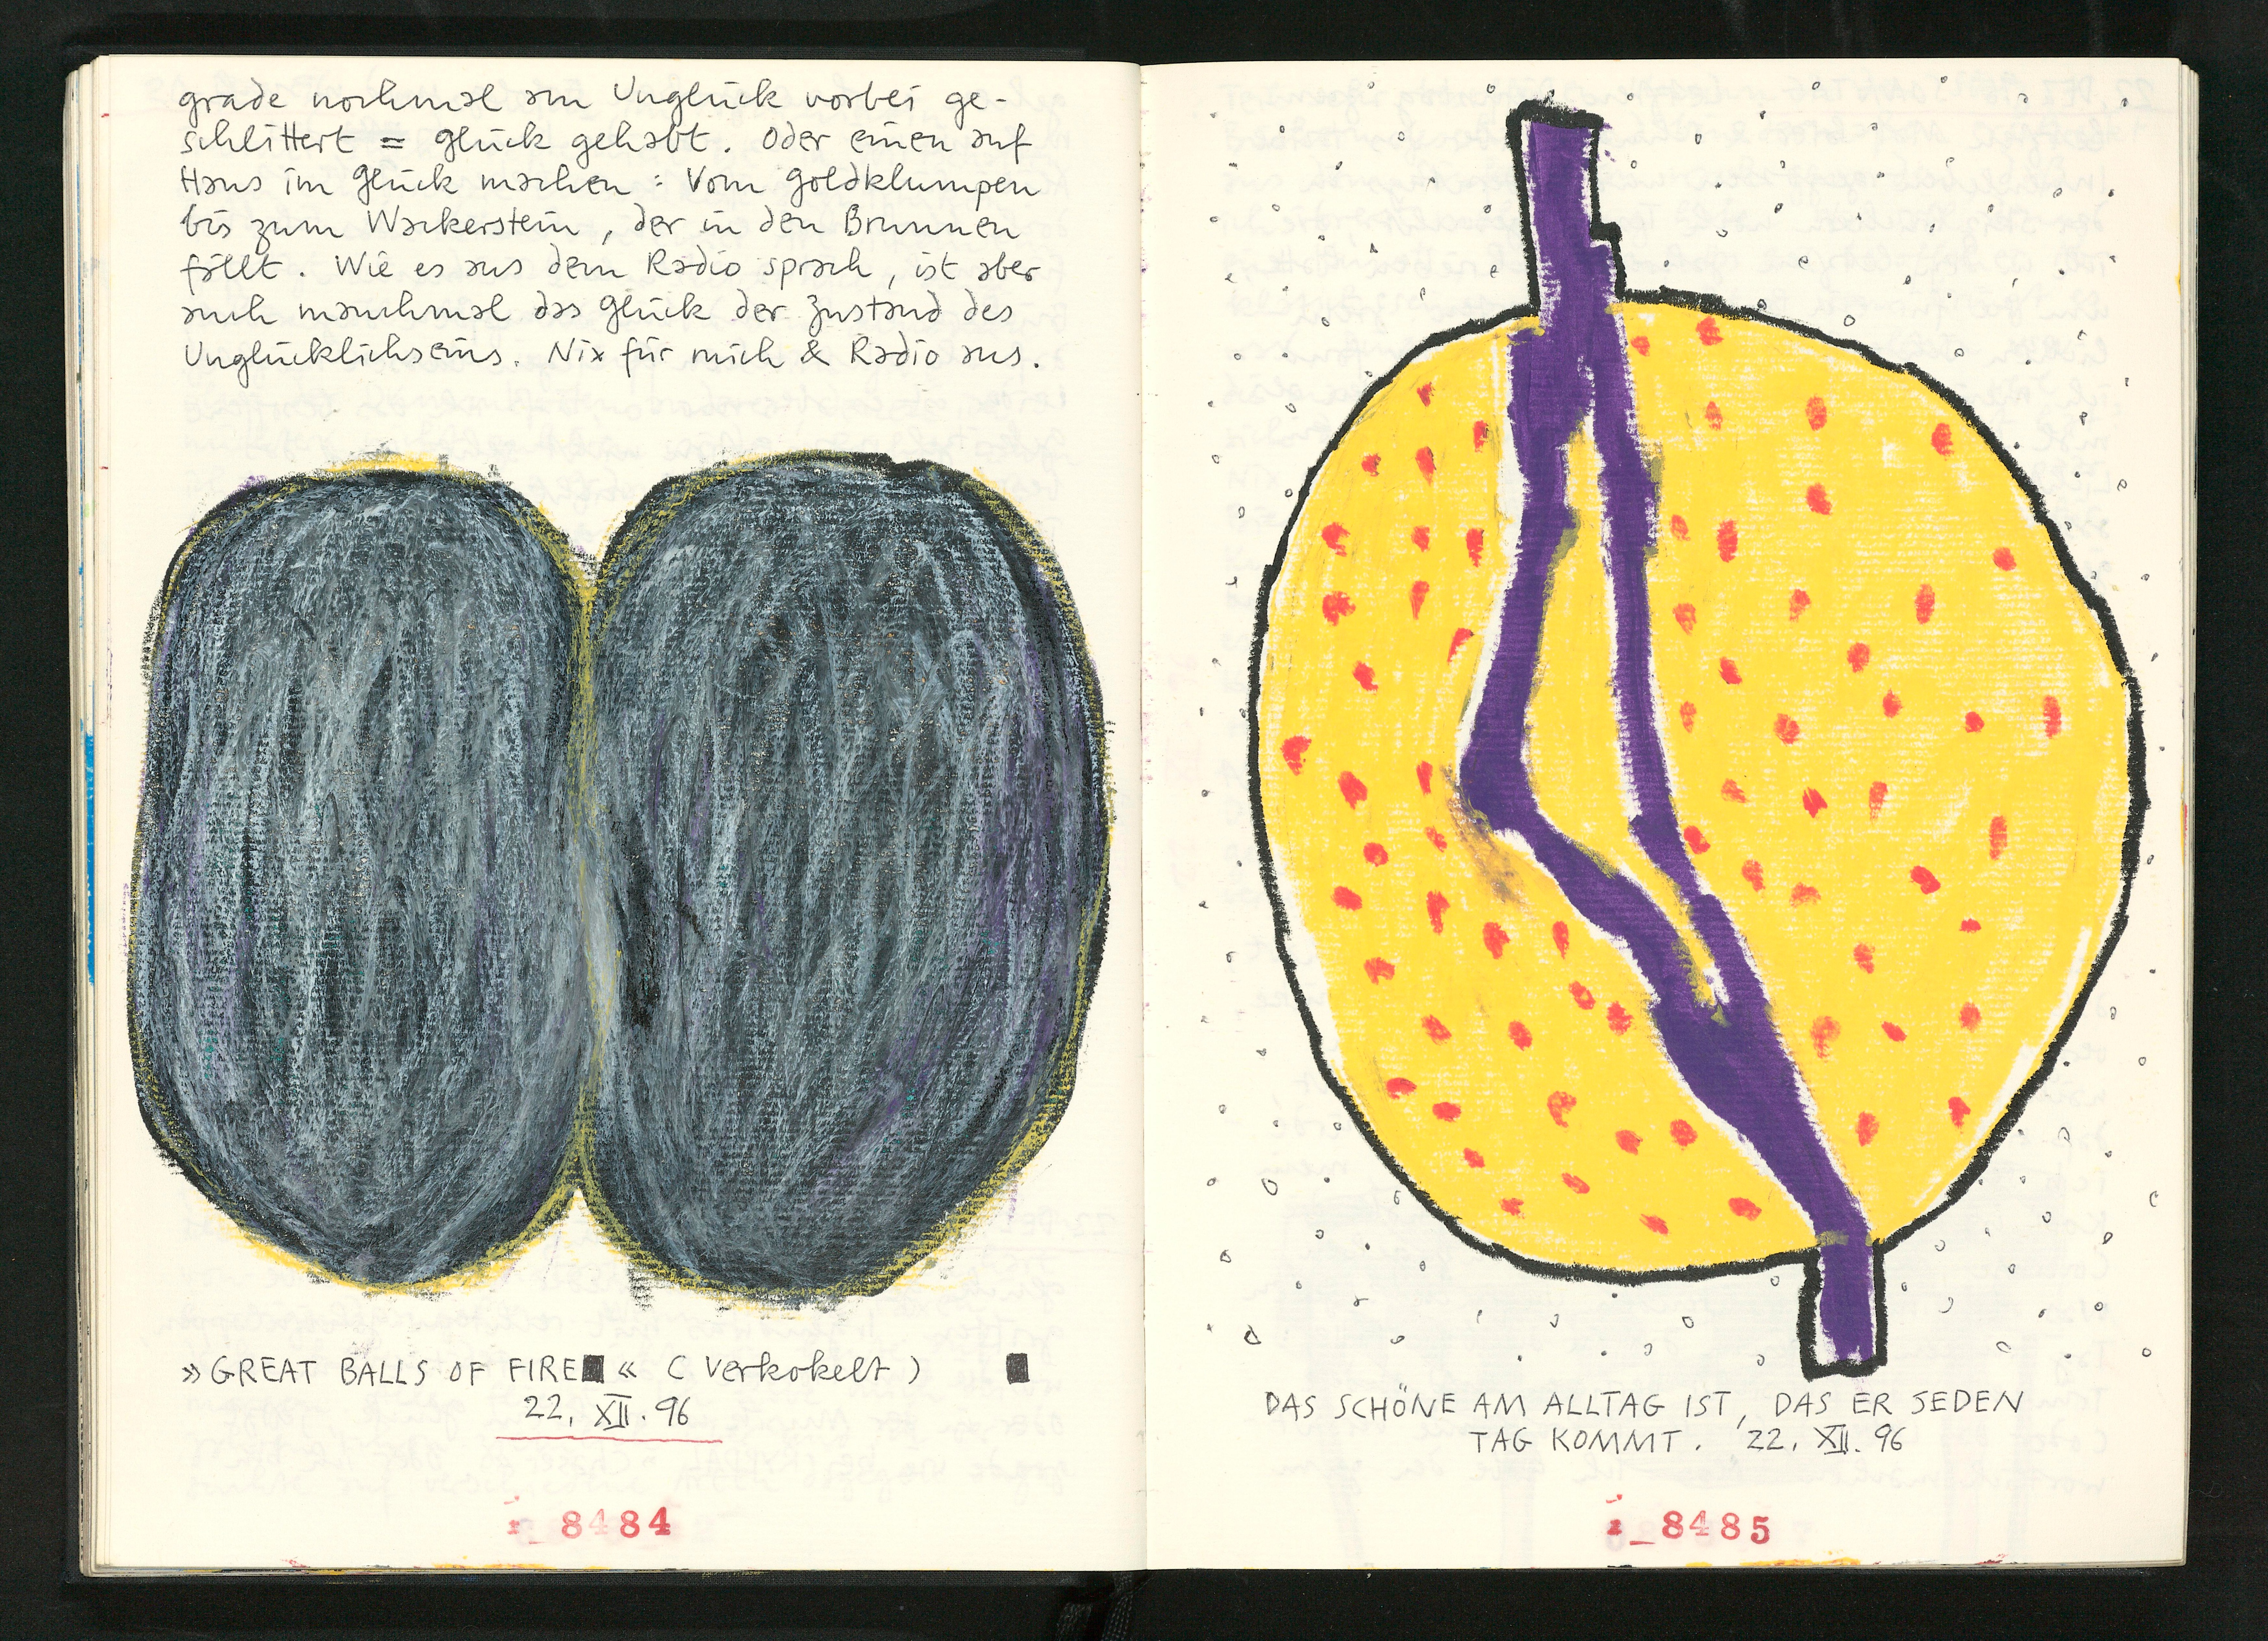 grade nochmal am Unglück vorbei ge-
schlittert = Glück gehabt. Oder einen auf
Hans im Glück machen : Vom Goldklumpen
bis zum Wackerstein, der in den Brunnen
fällt. Wie es aus dem Radio sprach, ist aber
auch manchmal das Glück der Zustand des
Unglücklichseins. Nix für mich & Radio aus.
»GREAT BALLS OF FIRE■« (verkokelt) ■
22. XII. 96
8484
DAS SCHÖNE AM ALLTAG IST, DAS ER JEDEN
TAG KOMMT. 22. XII. 96
8485